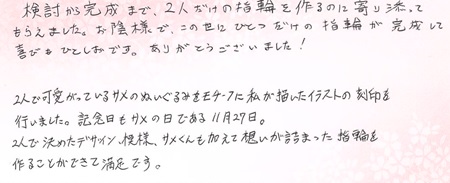 検討から完成まで、2人だけの指輪を作るのに寄り添って
もらえました。お陰様で、この世にひとつだけの指輪が完成して
喜びもひとしおです。ありがとうございました!
2人で可愛がっているサメのぬいぐるみをモチーフに私が描いたイラストの刻印を
行いました。記念日もサメの日である11月27日。
2人で決めたデザイン、模様、サメくんも加えて想いが詰まった指輪を
作ることができて満足です。